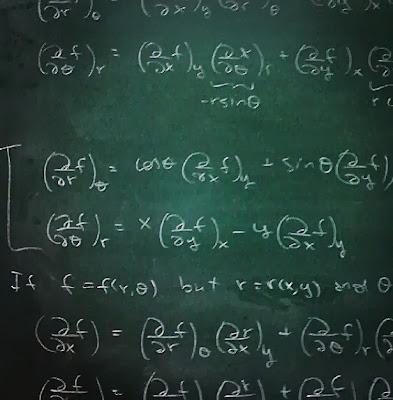 )θ (∂x)y (∂r)θ (∂y
(∂f/∂θ)r = (∂f/∂x)y (∂x/∂θ)r + (∂f/∂y)x (∂
-rsinθ r
(∂f/∂r)θ = cosθ (∂f/∂x)y + sinθ (∂f/∂y)
(∂f/∂θ)r = x (∂f/∂y)x - y (∂f/∂x)y
If f = f(r,θ) but r = r(x,y) and θ
(∂f/∂x) = (∂f/∂r)θ (∂r/∂x)y + (∂f/∂θ)r (∂
(∂f = (∂f) (∂r) + (∂f